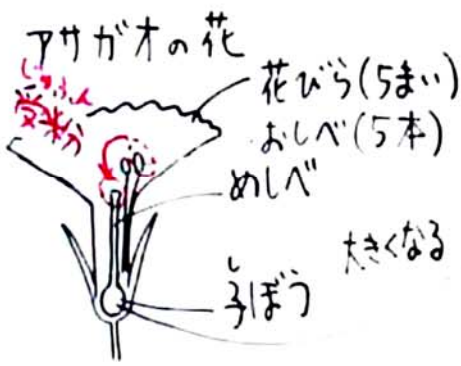 アサガオの花
じゅふん
受粉
花びら(5まい)
おしべ(5本)
めしべ
大きくなる
し
子ぼう